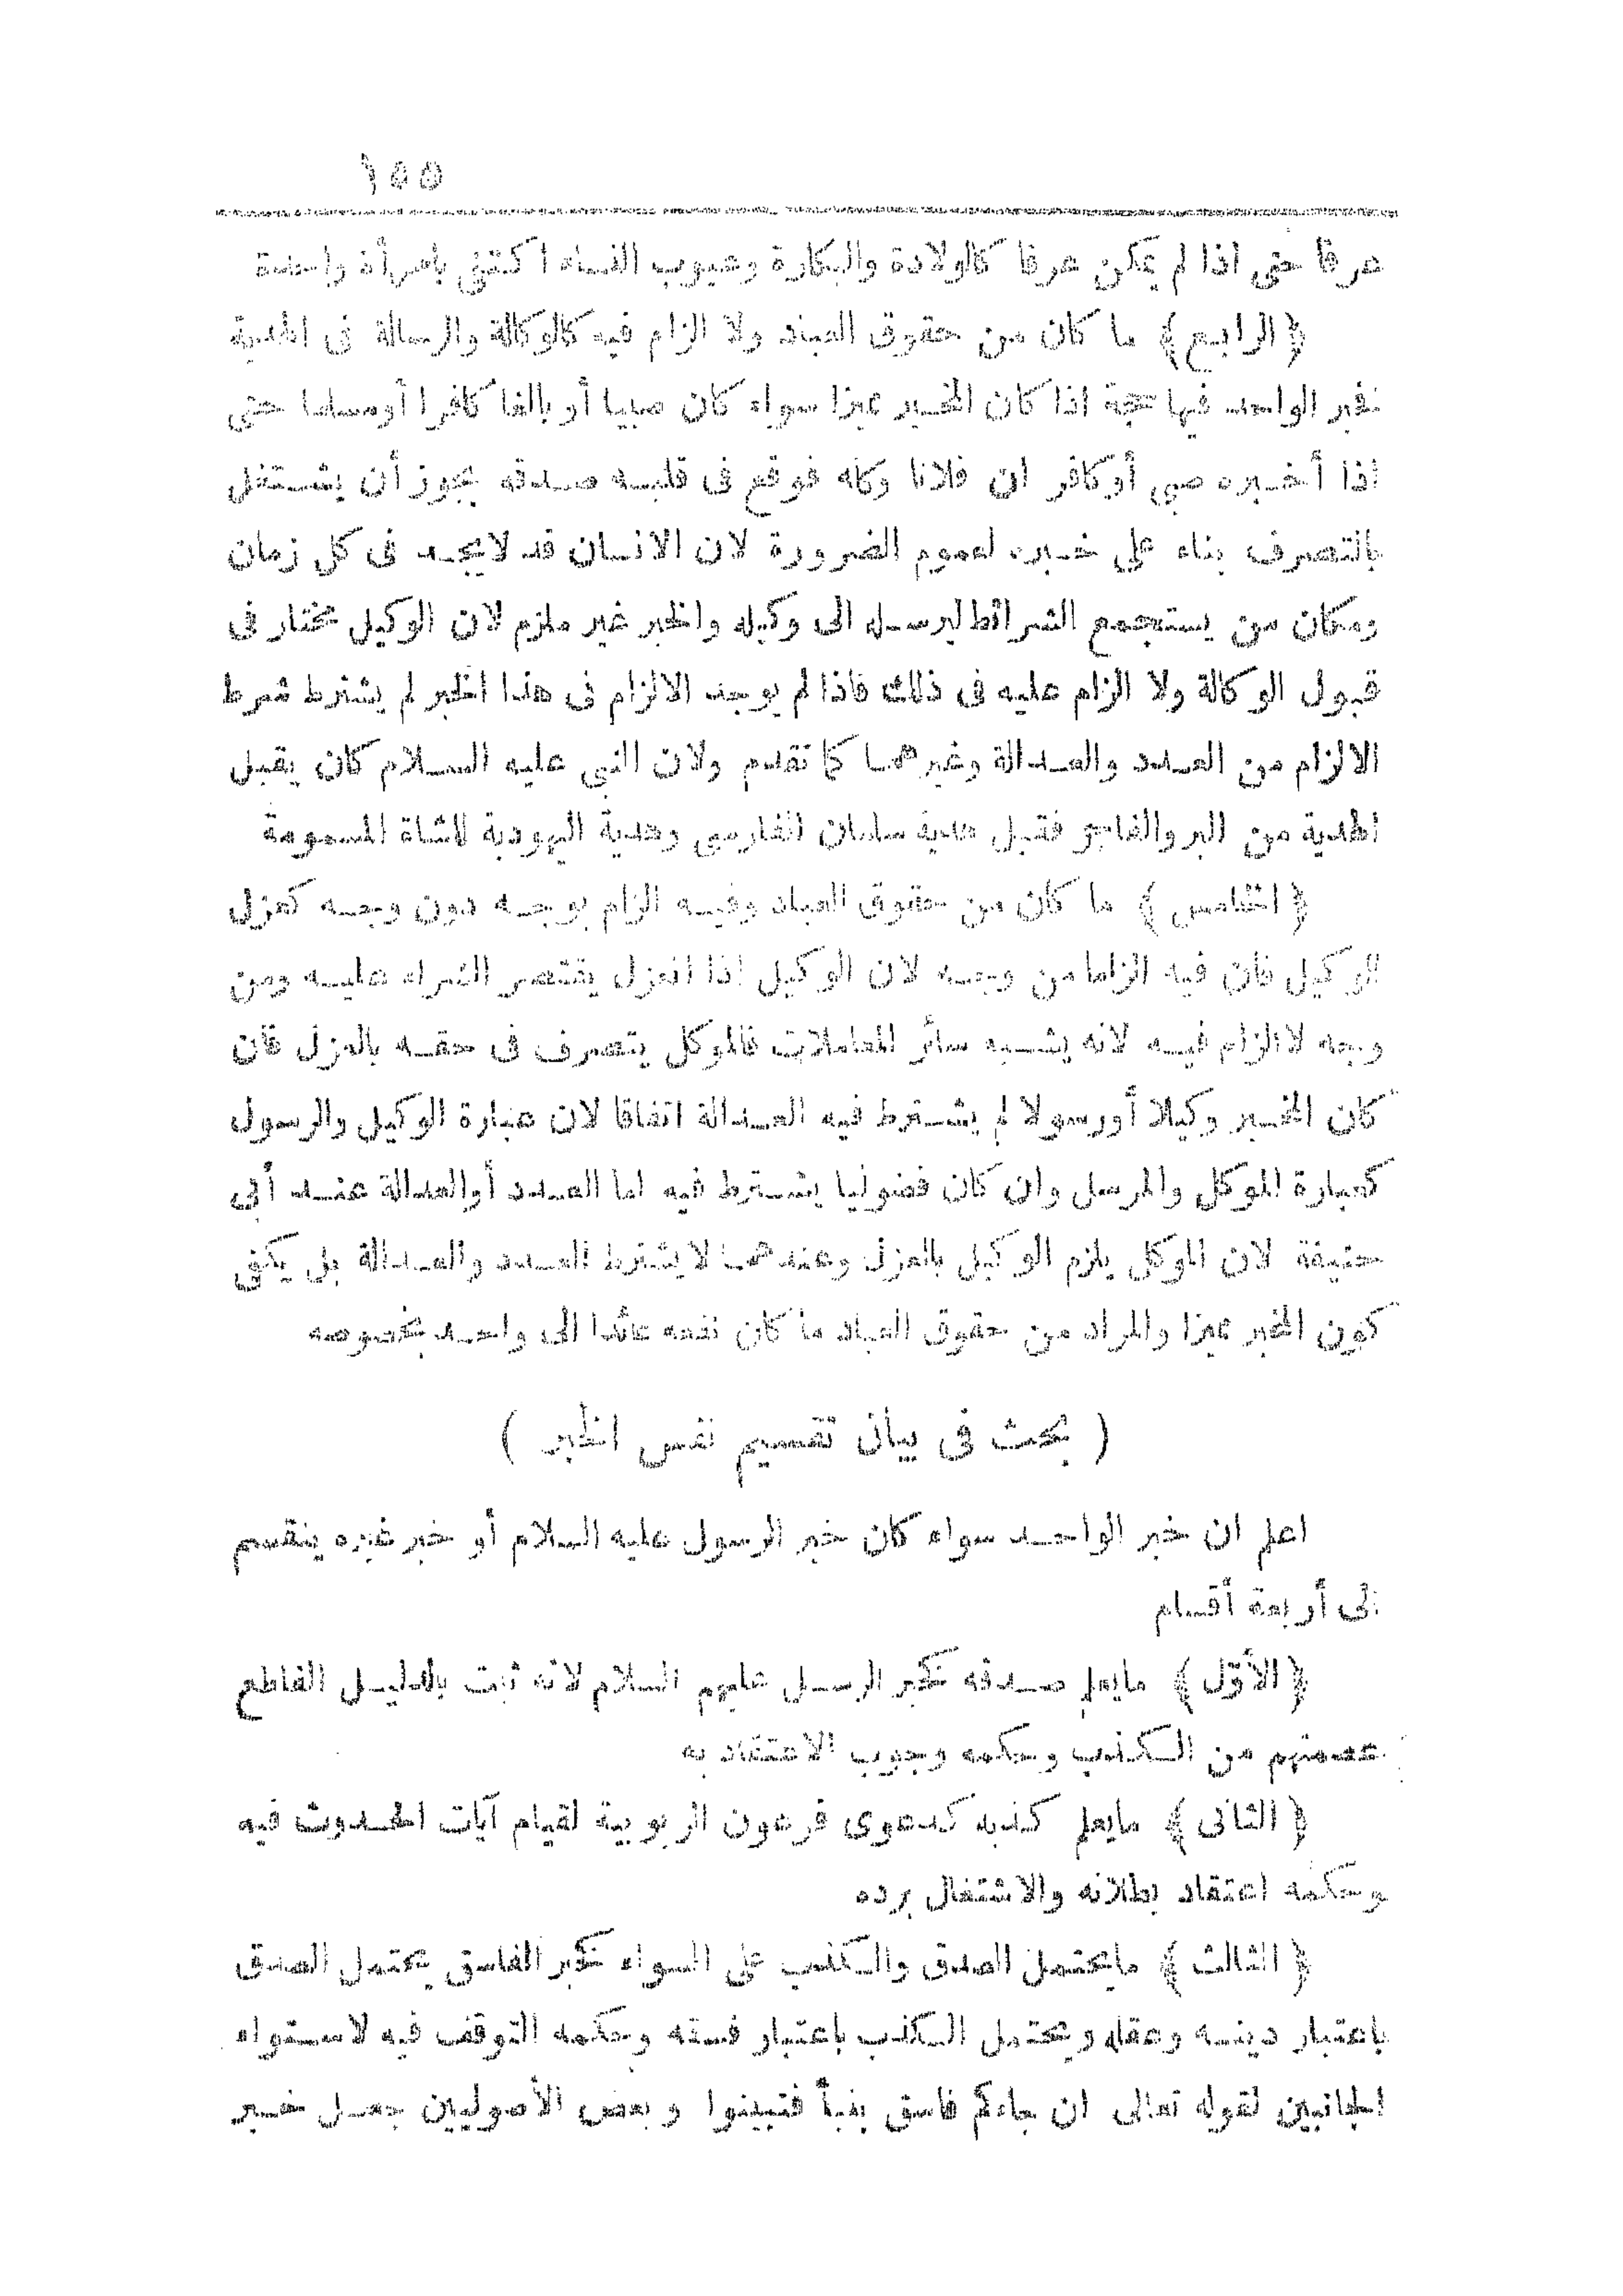 ١٥٥
عرفا حتى اذا لم يمكن عرفا كالولادة والبكارة وعيوب النساء اكتفى بامرأة واحدة
﴿ الرابع ﴾ ما كان من حقوق العباد ولا الزام فيه كالوكالة والرسالة فى الهدية
فخبر الواحد فيها حجة اذا كان المخبر مميزا سواء كان صبيا أو بالغا كافرا أو مسلما حتى
اذا أخبره صبى أو كافر ان فلانا وكله فوقع فى قلبه صدقه يجوز أن يشتغل
بالتصرف بناء على خبره لعموم الضرورة لان الانسان قد لا يجد فى كل زمان
ومكان من يستجمع الشرائط ليرسله الى وكيله والخبر غير ملزم لان الوكيل مختار فى
قبول الوكالة ولا الزام عليه فى ذلك فاذا لم يوجد الالزام فى هذا الخبر لم يشترط شرط
الالزام من العدد والعدالة وغيرهما كما تقدم ولان النبى عليه السلام كان يقبل
الهدية من البر والفاجر فقبل هدية سلمان الفارسى وهدية اليهودية للشاة المسمومة
﴿ الخامس ﴾ ما كان من حقوق العباد وفيه الزام بوجه دون وجه كعزل
الوكيل فان فيه الزاما من وجه لان الوكيل اذا انعزل يقتصر الشراء عليه ومن
وجه لا الزام فيه لانه يشبه سائر المعاملات فالموكل يتصرف فى حقه بالعزل فان
كان المخبر وكيلا أو رسولا لم يشترط فيه العدالة اتفاقا لان عبارة الوكيل والرسول
كعبارة الموكل والمرسل وان كان فضوليا يشترط فيه اما العدد أو العدالة عند أبى
حنيفة لان الموكل يلزم الوكيل بالعزل وعندهما لا يشترط العدد والعدالة بل يكفى
كون المخبر مميزا والمراد من حقوق العباد ما كان نفعه عائدا الى واحد بخصوصه
( بحث فى بيان تقسيم نفس الخبر )
اعلم ان خبر الواحد سواء كان خبر الرسول عليه السلام أو خبر غيره ينقسم
الى أربعة أقسام
﴿ الأول ﴾ ما يعلم صدقه كخبر الرسل عليهم السلام لانه ثبت بالدليل القاطع
عصمتهم من الكذب وحكمه وجوب الاعتقاد به
﴿ الثانى ﴾ ما يعلم كذبه كدعوى فرعون الربوبية لقيام آيات الحدوث فيه
وحكمه اعتقاد بطلانه والاشتغال برده
﴿ الثالث ﴾ ما يحتمل الصدق والكذب على السواء كخبر الفاسق يحتمل الصدق
باعتبار دينه وعقله ويحتمل الكذب باعتبار فسقه وحكمه التوقف فيه لاستواء
الجانبين لقوله تعالى ان جاءكم فاسق بنبأ فتبينوا وبعض الأصوليين جعل خبر